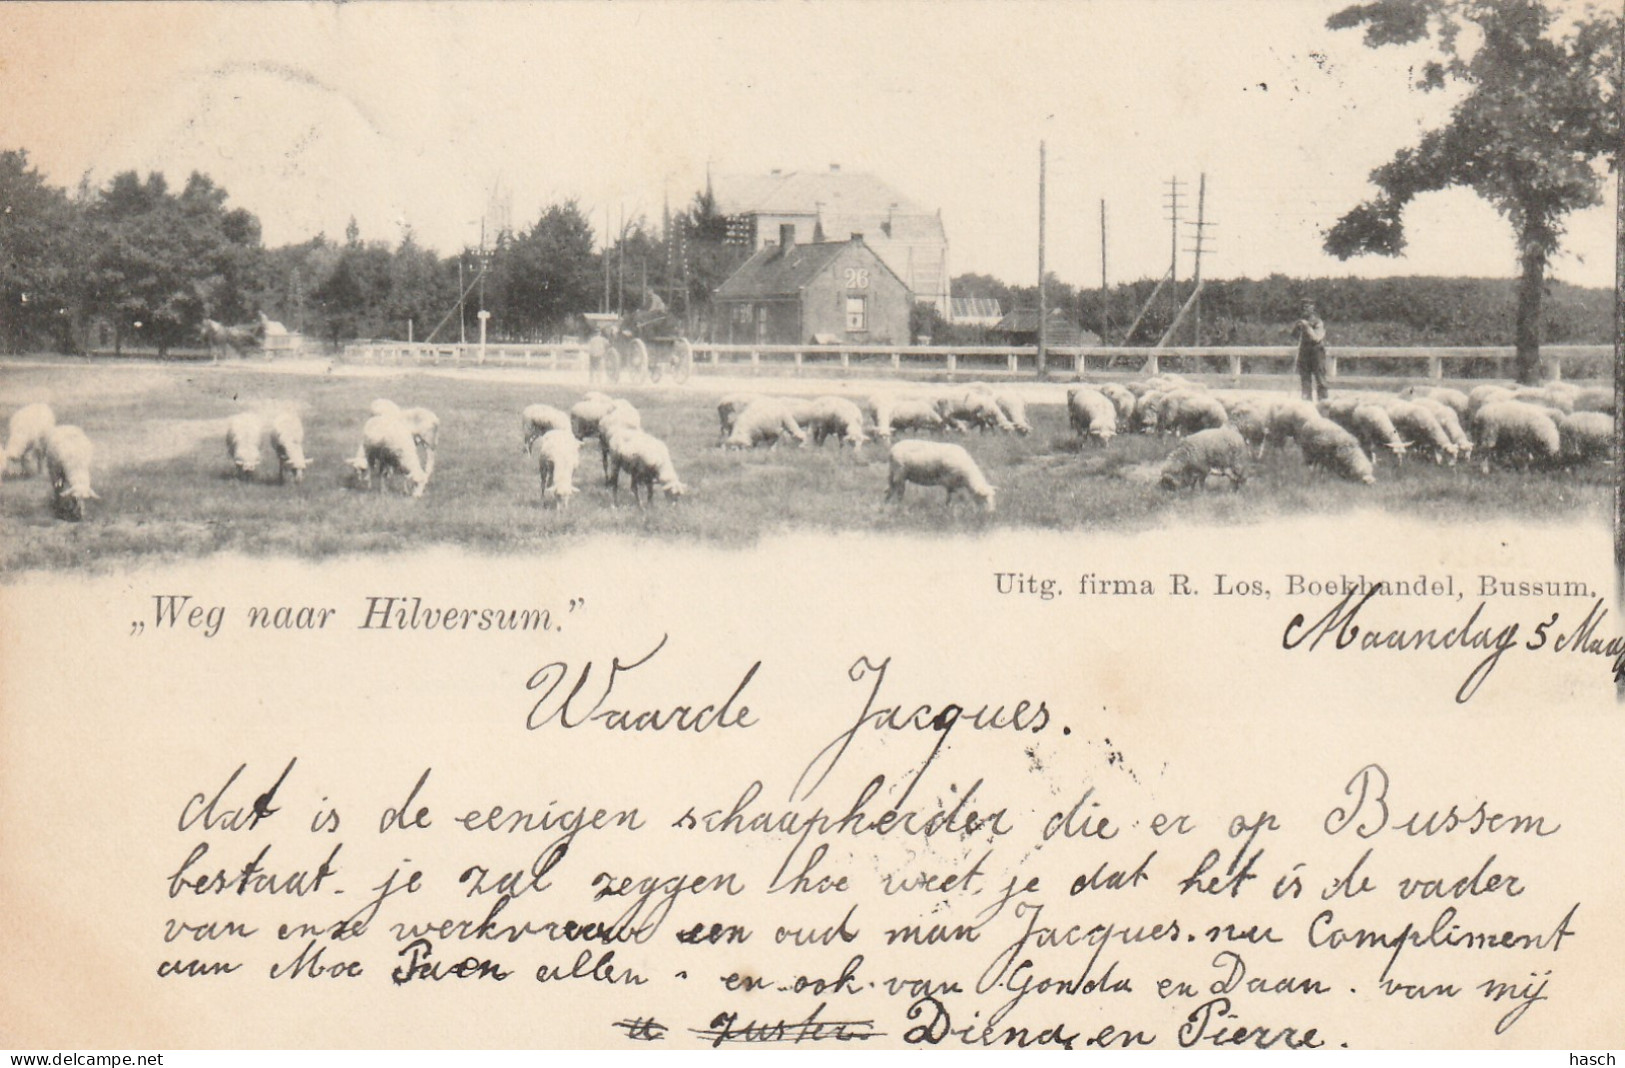 26
Uitg. firma R. Los, Boekhandel, Bussum.
„Weg naar Hilversum.”
Maandag 5 Maart
Waarde Jacques.
dat is de eenigen schaapherder die er op Bussem
bestaat. je zal zeggen hoe weet je dat het is de vader
van onze werkvrouw een oud man Jacques. nu Compliment
aan Moe Pa en allen. en ook van Gonda en Daan. van mij
u zuster Diena en Pierre.
hasch
www.delcampe.net